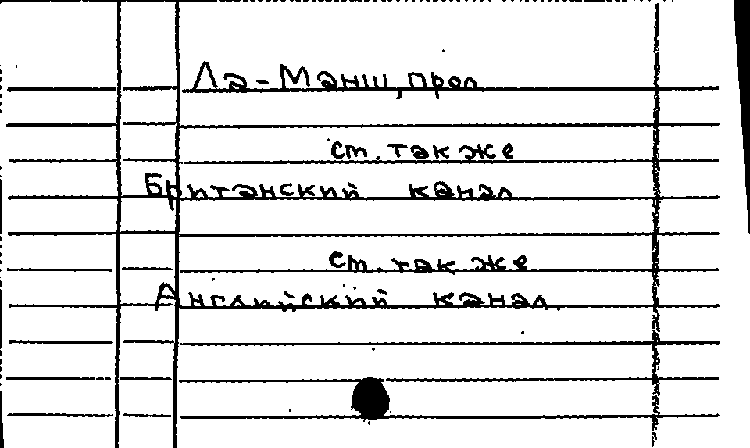 Ла-Манш, прол
см. также
Британский канал
см. также
Английский канал.